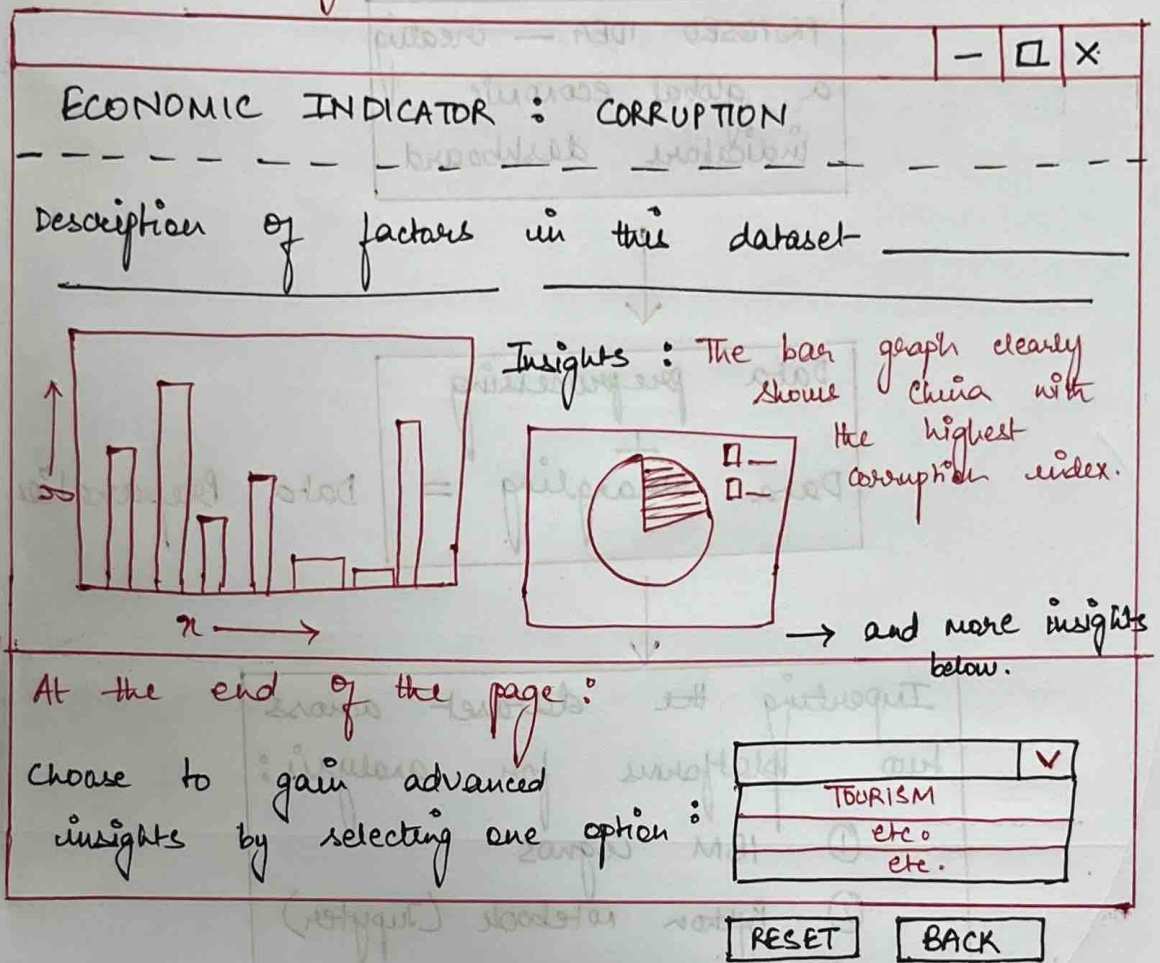 ECONOMIC INDICATOR : CORRUPTION
Description of factors in this dataset
Insights : The bar graph clearly
shows China with
the highest
corruption index.
x →
→ and more insights
below.
At the end of the page :
Choose to gain advanced
insights by selecting one option :
TOURISM
etc.
etc.
RESET
BACK